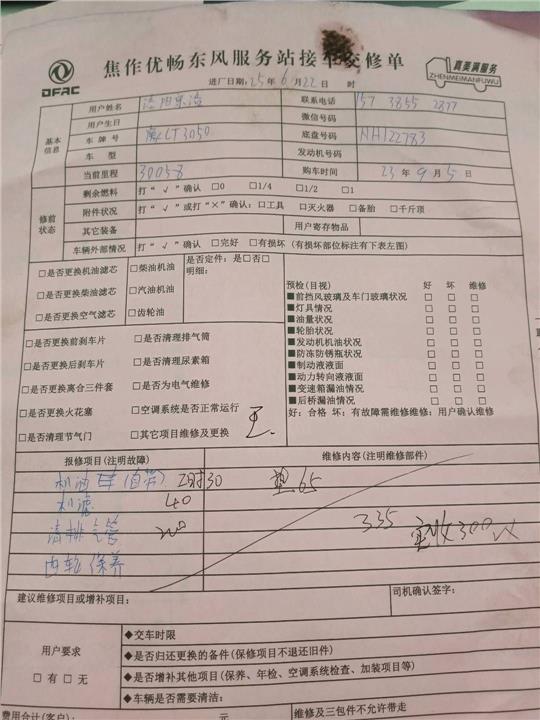 DFAC
焦作优畅东风服务站接车交修单
真美满服务
ZHENMEIMANFUWU
进厂日期: 25年 6月 22日 时
基本信息
用户姓名
联系电话 157 3855 2877
用户生日
微信号码
车 牌 号 冀CT3050
底盘号码 NH122783
车 型
发动机号码
当前里程 30058
购车时间 23年 9月 5日
修前状态
剩余燃料 打“√”确认 □0 □1/4 □1/2 □1
附件状况 打“√”或打“×”确认: □工具 □灭火器 □备胎 □千斤顶
其它装备 用户寄存物品
车辆外部情况 打“√”确认 □完好 □有损坏 (有损坏部位标注有下表左图)
□是否更换机油滤芯 □柴油机油 是否定件: 是□否□
明细:
□是否更换柴油滤芯 □汽油机油
□是否更换空气滤芯 □齿轮油
预检(目视) 好 坏 维修
■前挡风玻璃及车门玻璃状况 □ □ □
■灯具情况 □ □ □
■油量状况 □ □ □
■轮胎状况 □ □ □
■发动机机油状况 □ □ □
■防冻防锈瓶状况 □ □ □
■制动液液面 □ □ □
■动力转向液液面 □ □ □
■变速箱漏油情况 □ □ □
■后桥漏油情况 □ □ □
好: 合格 坏: 有故障需维修维修: 用户确认维修
□是否更换前刹车片 □是否清理排气筒
□是否更换后刹车片 □是否清理尿素箱
□是否更换离合三件套 □是否为电气维修
□是否更换火花塞 □空调系统是否正常运行
□是否清理节气门 □其它项目维修及更换
报修项目(注明故障) 维修内容(注明维修部件)
机油 (自带) 工时30 65
机滤 40
清排气管 200 335 300
内轮保养
建议维修项目或增补项目:
司机确认签字:
用户要求
□ 有 □ 无
◆交车时限
◆是否归还更换的备件(保修项目不退还旧件)
◆是否增补其他项目(保养、年检、空调系统检查、加装项目等)
◆车辆是否需要清洁:
费用合计(客户): 元
维修及三包件不允许带走